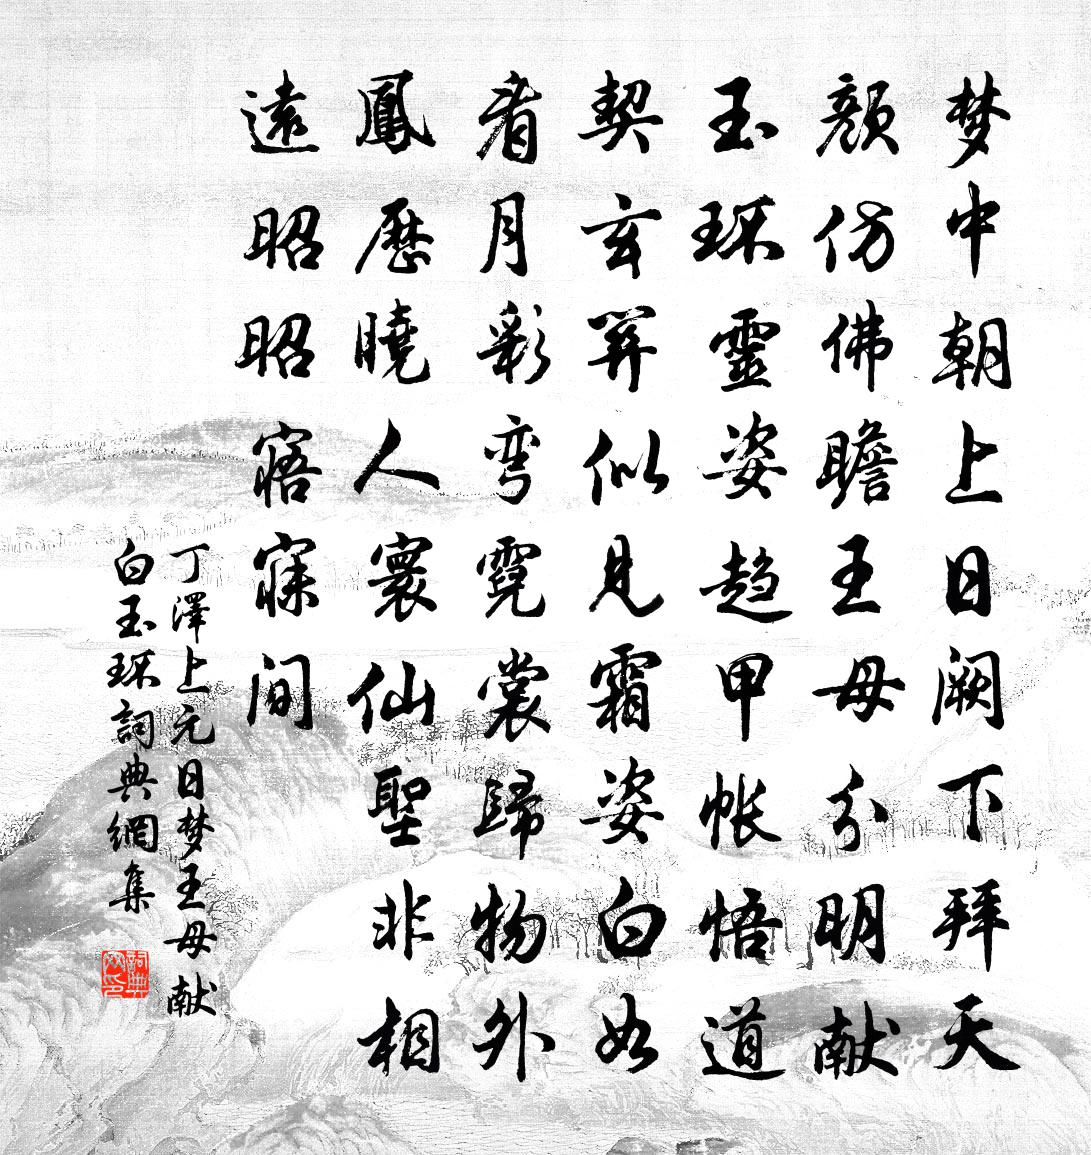 梦中朝上日阙下拜天
顔仿佛瞻王母分明献
玉环靈姿趋甲帐悟道
契玄関似见霜姿白如
看月彩弯霓裳歸物外
鳳歷曉人寰仙聖非相
遠昭昭寤寐间
丁澤上元日梦王母献
白玉环詞典網集
詞典
网印